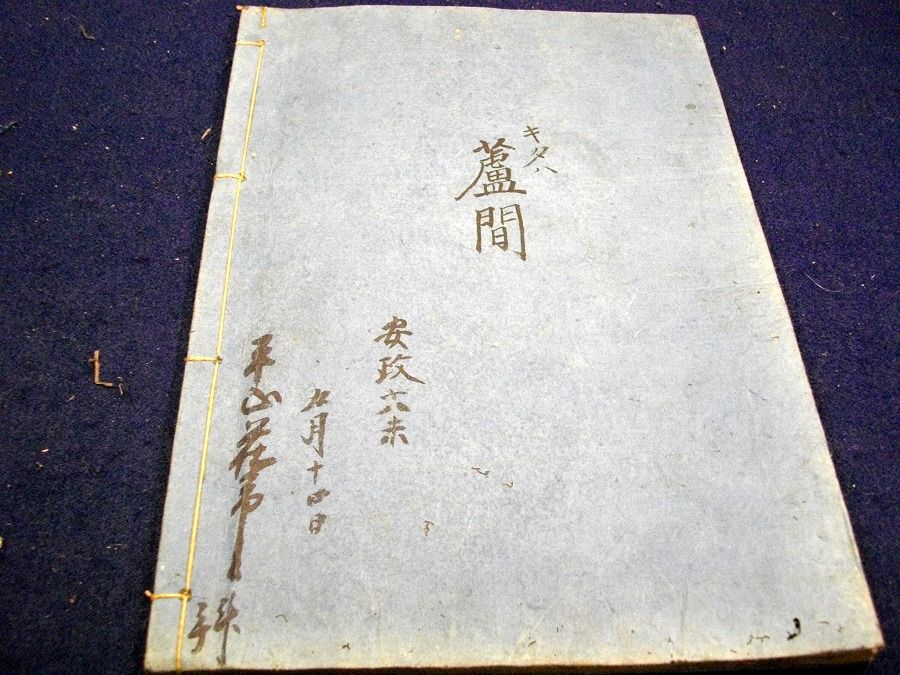 キタハ
蘆間
安政六未
九月十四日
平山